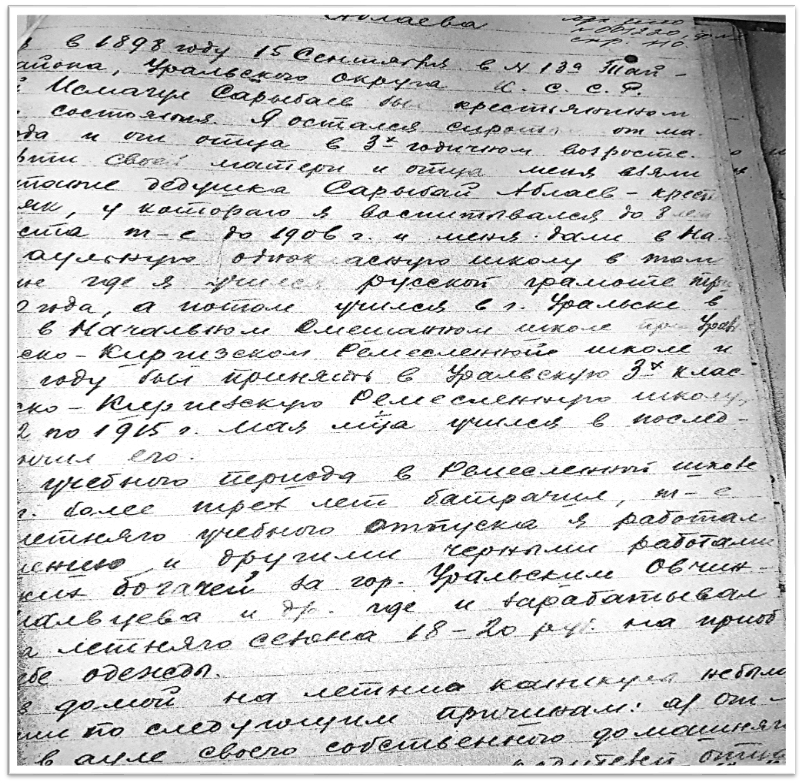 Аблаева
в 1898 году 15 Сентября в № 139 Тай-
айона, Уральского округа К. С. С. Р.
й Исмагул Сарыбаев был крестьянином
состояния Я остался сирот от ма-
ода и от отца в 3х годичном возросте.
рти своей матери и отца меня взяли
тание дедушка Сарыбай Аблаев - крест
як, у котораго я воспитывался до 8 лет
ста т-е до 1906 г. и меня дали в На-
аульную однокласную школу в том
не где я учился русской грамоте три
года, а потом учился в г. Уральске в
в Начальном Смешанном школе при Урал
ско-Киргизском Ремесленной школе и
году был принять в Уральскую 3х клас
ско-Киргизскую Ремесленную школу,
2 по 1915 г. мая м-ца учился в послед-
нчил его.
учебного периода в Ремесленной школе
г. более трех лет батрачил, т-е
летняго учебного отпуска я работал
ению и другими черными работами
ких богачей за гор. Уральским Овчин-
мальцева и др. где и зарабатывал
а летняго сезона 18-20 руб. на приоб
ебе одежды.
в домой на летния каникулы небыло
ти по следующим причинам: а) от-
в ауле своего собственного домашняг
родителей отца